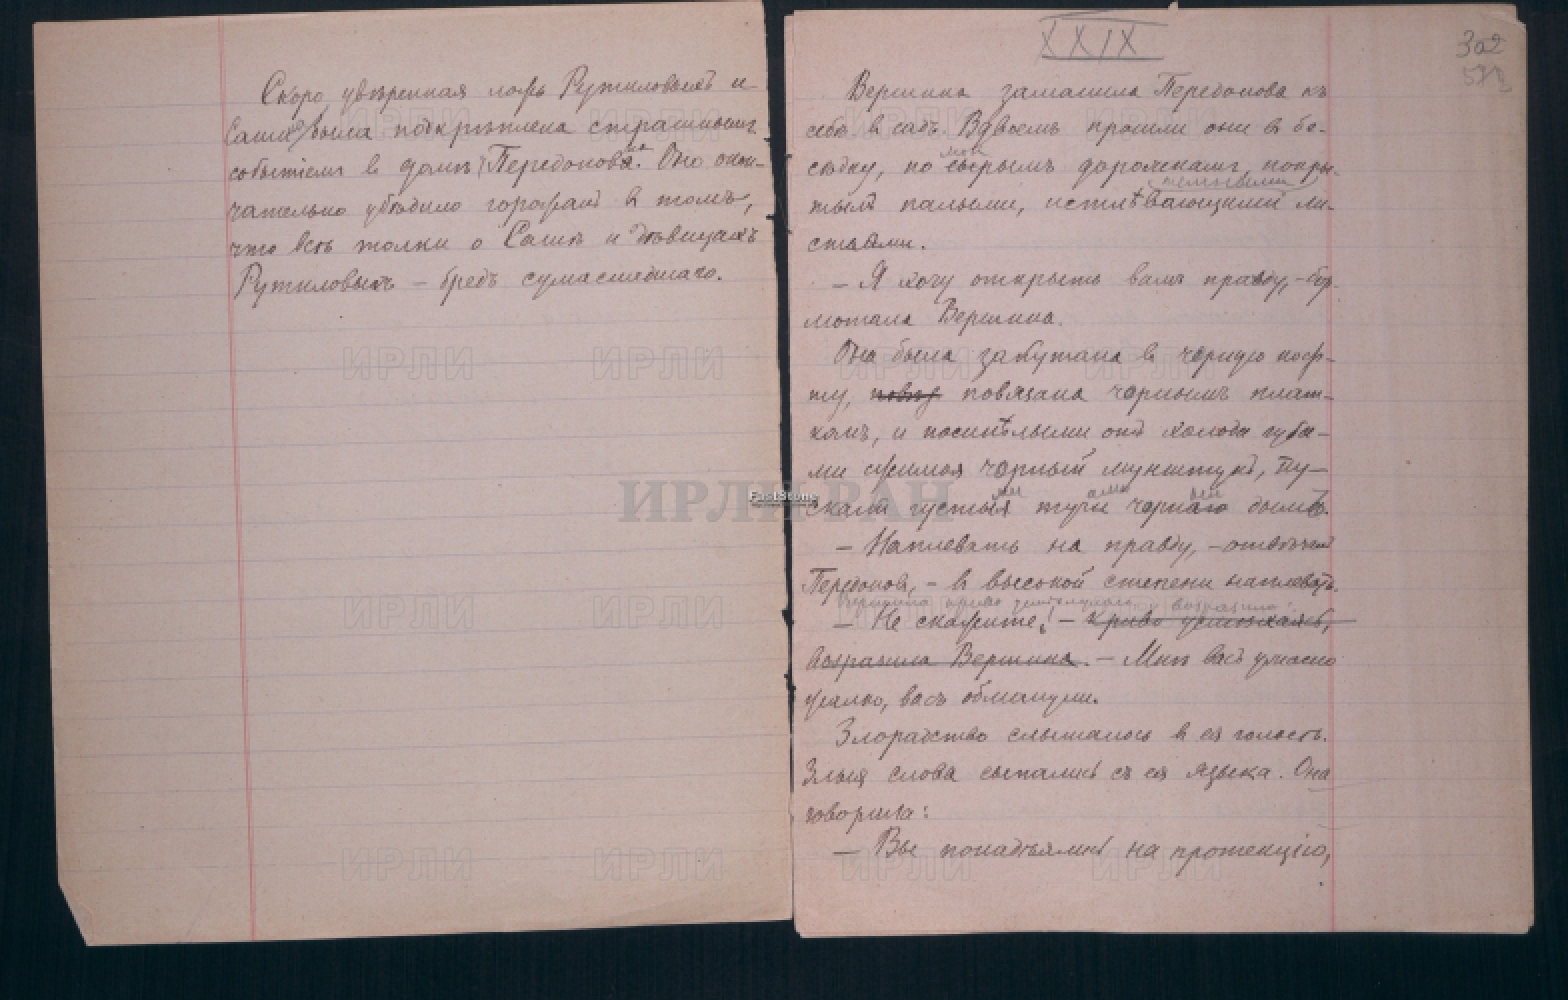 Скоро увѣренная ложь Рутиловыхъ и
Саши была подкрѣплена страшнымъ
событіемъ в домѣ Передонова. Оно окон-
чательно убѣдило горожанъ в томъ,
что всѣ толки о Сашѣ и дѣвицахъ
Рутиловыхъ – бредъ сумасшедшаго.
XXIX
302
Вершина заманила Передонова къ
себѣ в садъ. Вдвоемъ прошли они в бе-
сѣдку, по сырымъ дорожкамъ, покры-
темными
тымъ палыми, истлѣвающими ли-
стьями.
– Я хочу открыть вамъ правду, – бор-
мотала Вершина.
Она была закутана в чорную коф-
ту, повяз повязана чорнымъ плат-
комъ, и посинѣлыми отъ холода губа-
ми сжимая чорный мундштукъ, пу-
ми ами
скала густыя тучи чорнаго дыма.
– Наплевать на правду, – отвѣчалъ
Передоновъ, – в высокой степени наплевать.
Вершина криво усмѣхнулась и возразила:
– Не скажите! – криво усмѣхаясь,
возразила Вершина. – Мнѣ васъ ужасно
жалко, васъ обманули.
Злорадство слышалось в ея голосѣ.
Злыя слова сыпались съ ея языка. Она
говорила:
– Вы понадѣялись на протекцію,
ИРЛИ РАН
FastStone
ИРЛИ ИРЛИ ИРЛИ ИРЛИ